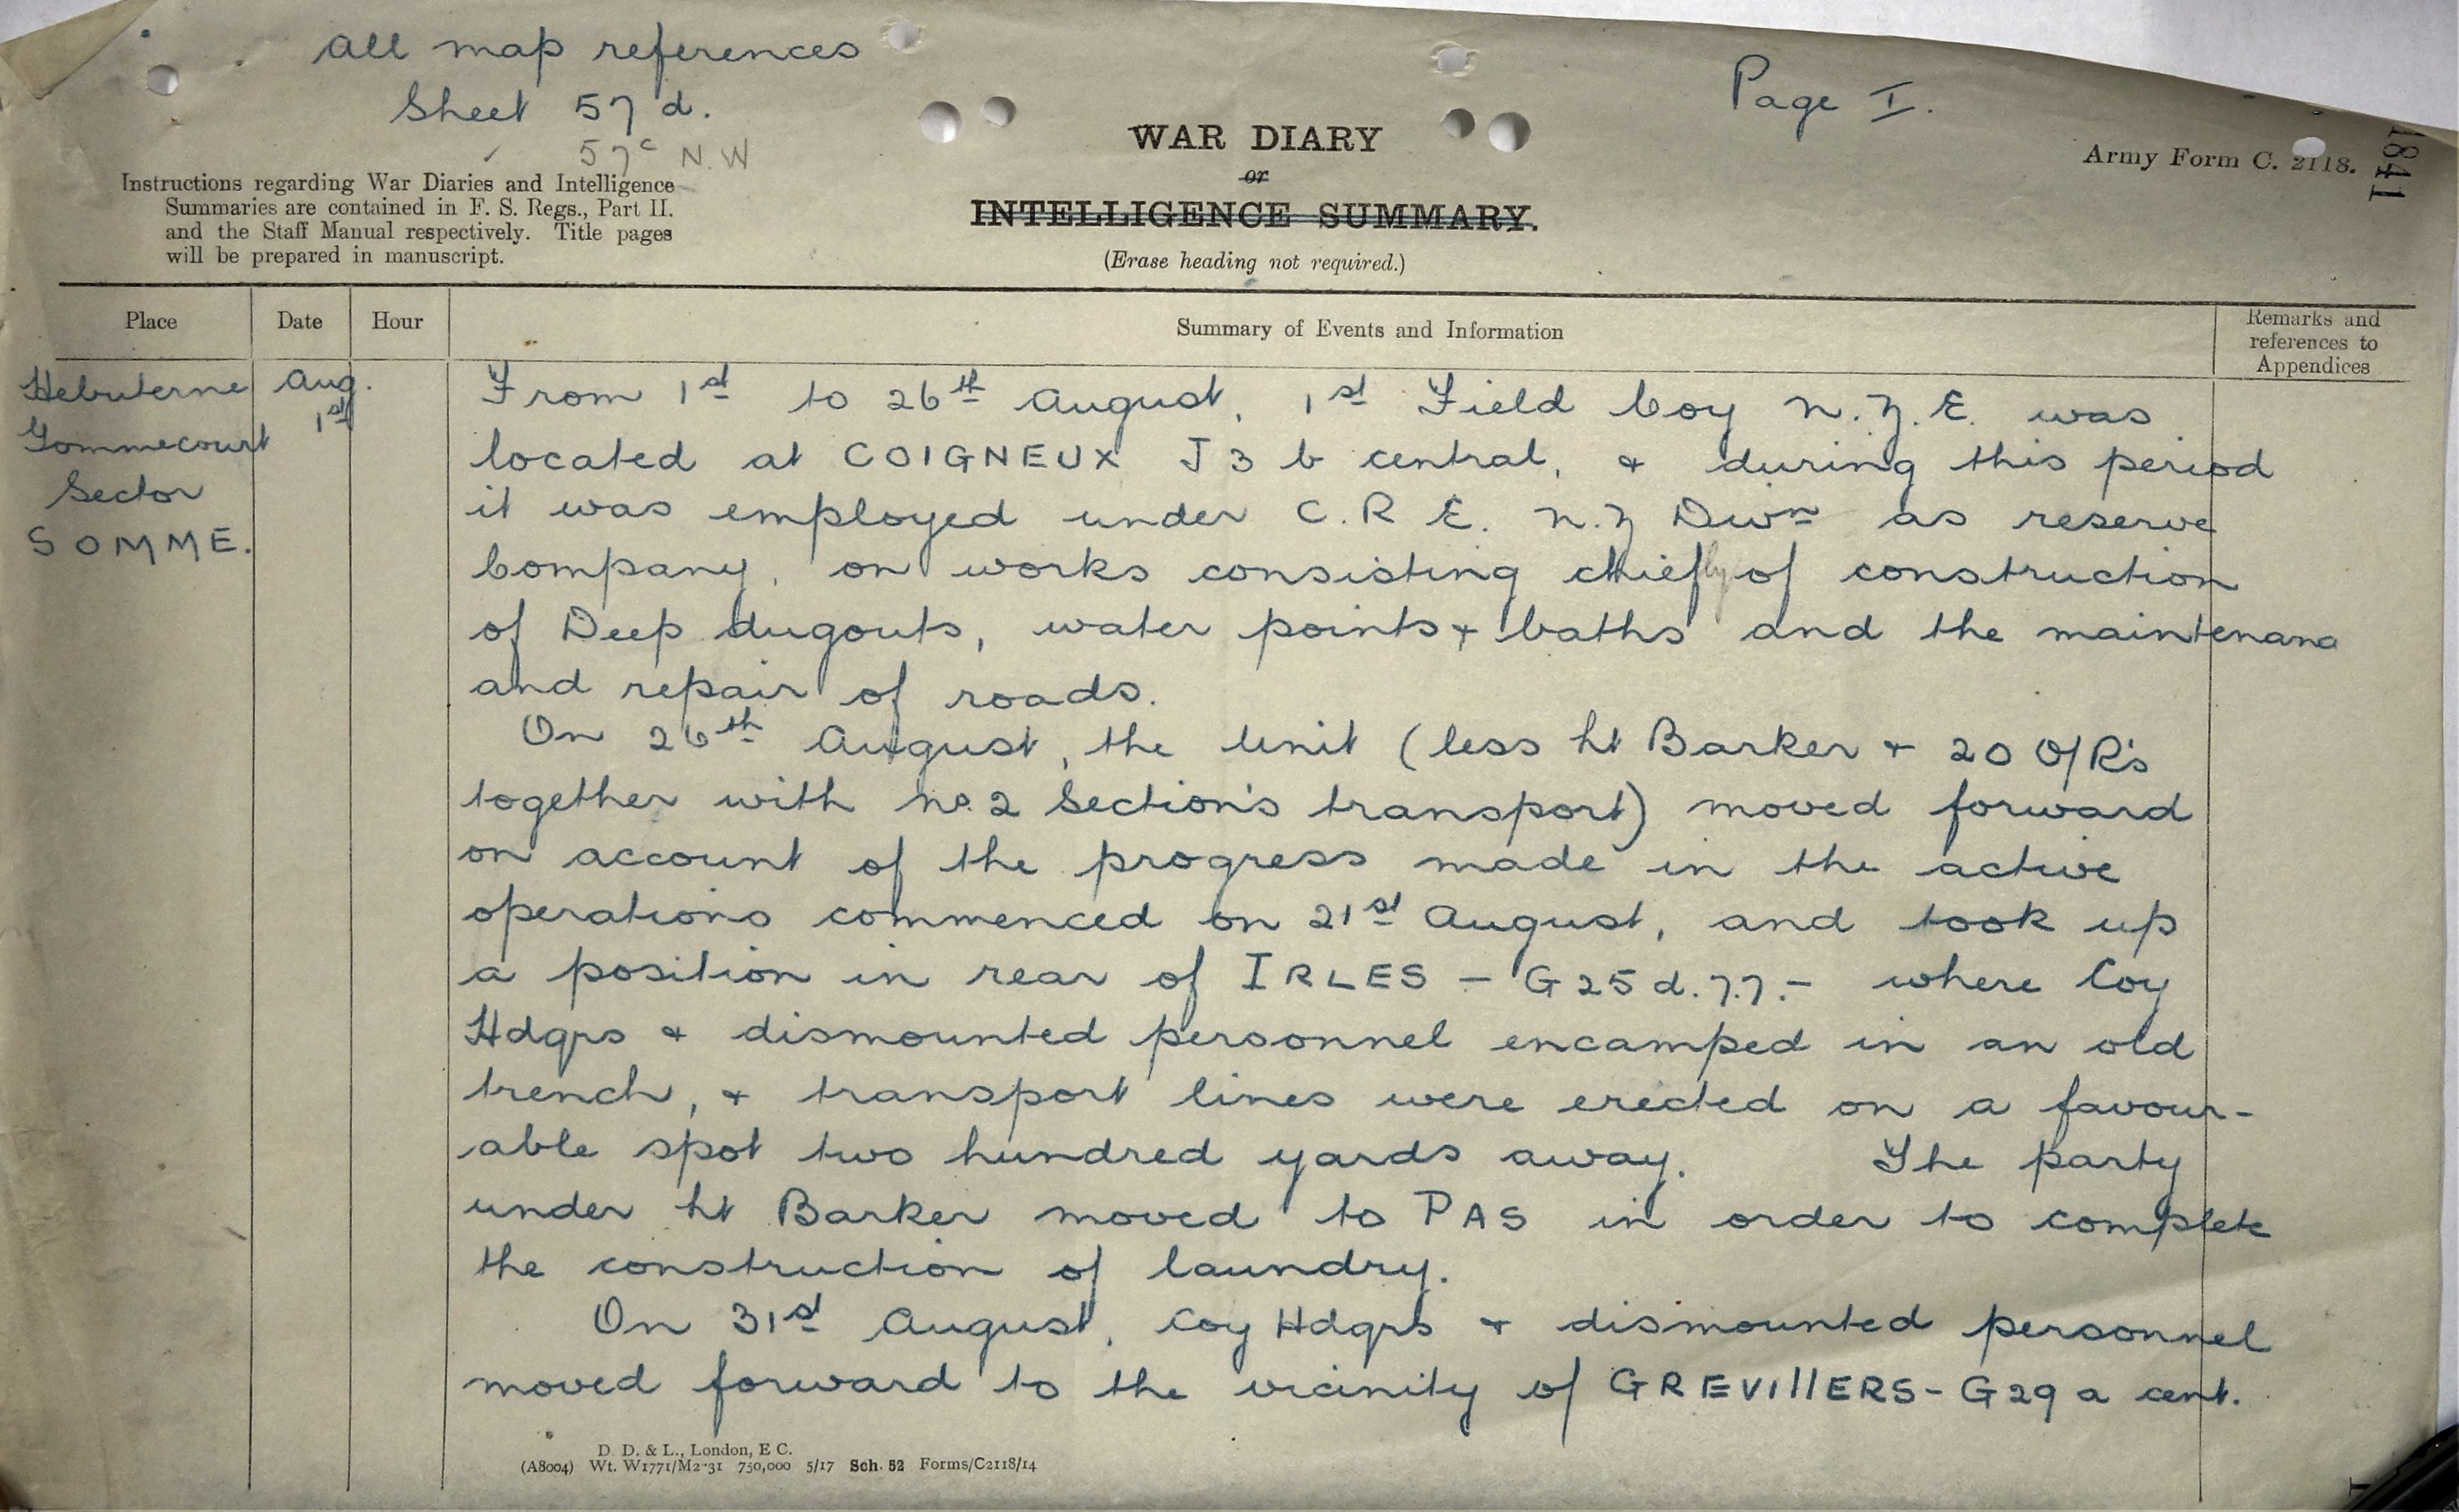 all map references
Sheet 57 d.
57c N.W
Page I.
WAR DIARY
or
INTELLIGENCE SUMMARY.
(Erase heading not required.)
Army Form C. 2118.
Instructions regarding War Diaries and Intelligence
Summaries are contained in F. S. Regs., Part II.
and the Staff Manual respectively. Title pages
will be prepared in manuscript.
Place
Date
Hour
Summary of Events and Information
Remarks and
references to
Appendices
Hebuterne
Gommecourt
Sector
SOMME.
Aug.
1st
From 1st to 26th August, 1st Field Coy N.Z.E. was
located at COIGNEUX J 3 b central, & during this period
it was employed under C.R.E. N.Z Divn as reserve
Company, on works consisting chiefly of construction
of Deep dugouts, water points & baths and the maintenanc
and repair of roads.
On 26th August, the Unit (less Lt Barker & 20 O/R's
together with No. 2 Section's transport) moved forward
on account of the progress made in the active
operations commenced on 21st August, and took up
a position in rear of IRLES – G25d.7.7. – where Coy
Hdqrs & dismounted personnel encamped in an old
trench, & transport lines were erected on a favour-
able spot two hundred yards away. The party
under Lt Barker moved to PAS in order to complete
the construction of laundry.
On 31st August, Coy Hdqrs & dismounted personnel
moved forward to the vicinity of GREVIllERS – G29 a cent.
D. D. & L., London, E C.
(A8004) Wt. W1771/M2-31 750,000 5/17 Sch. 52 Forms/C2118/14